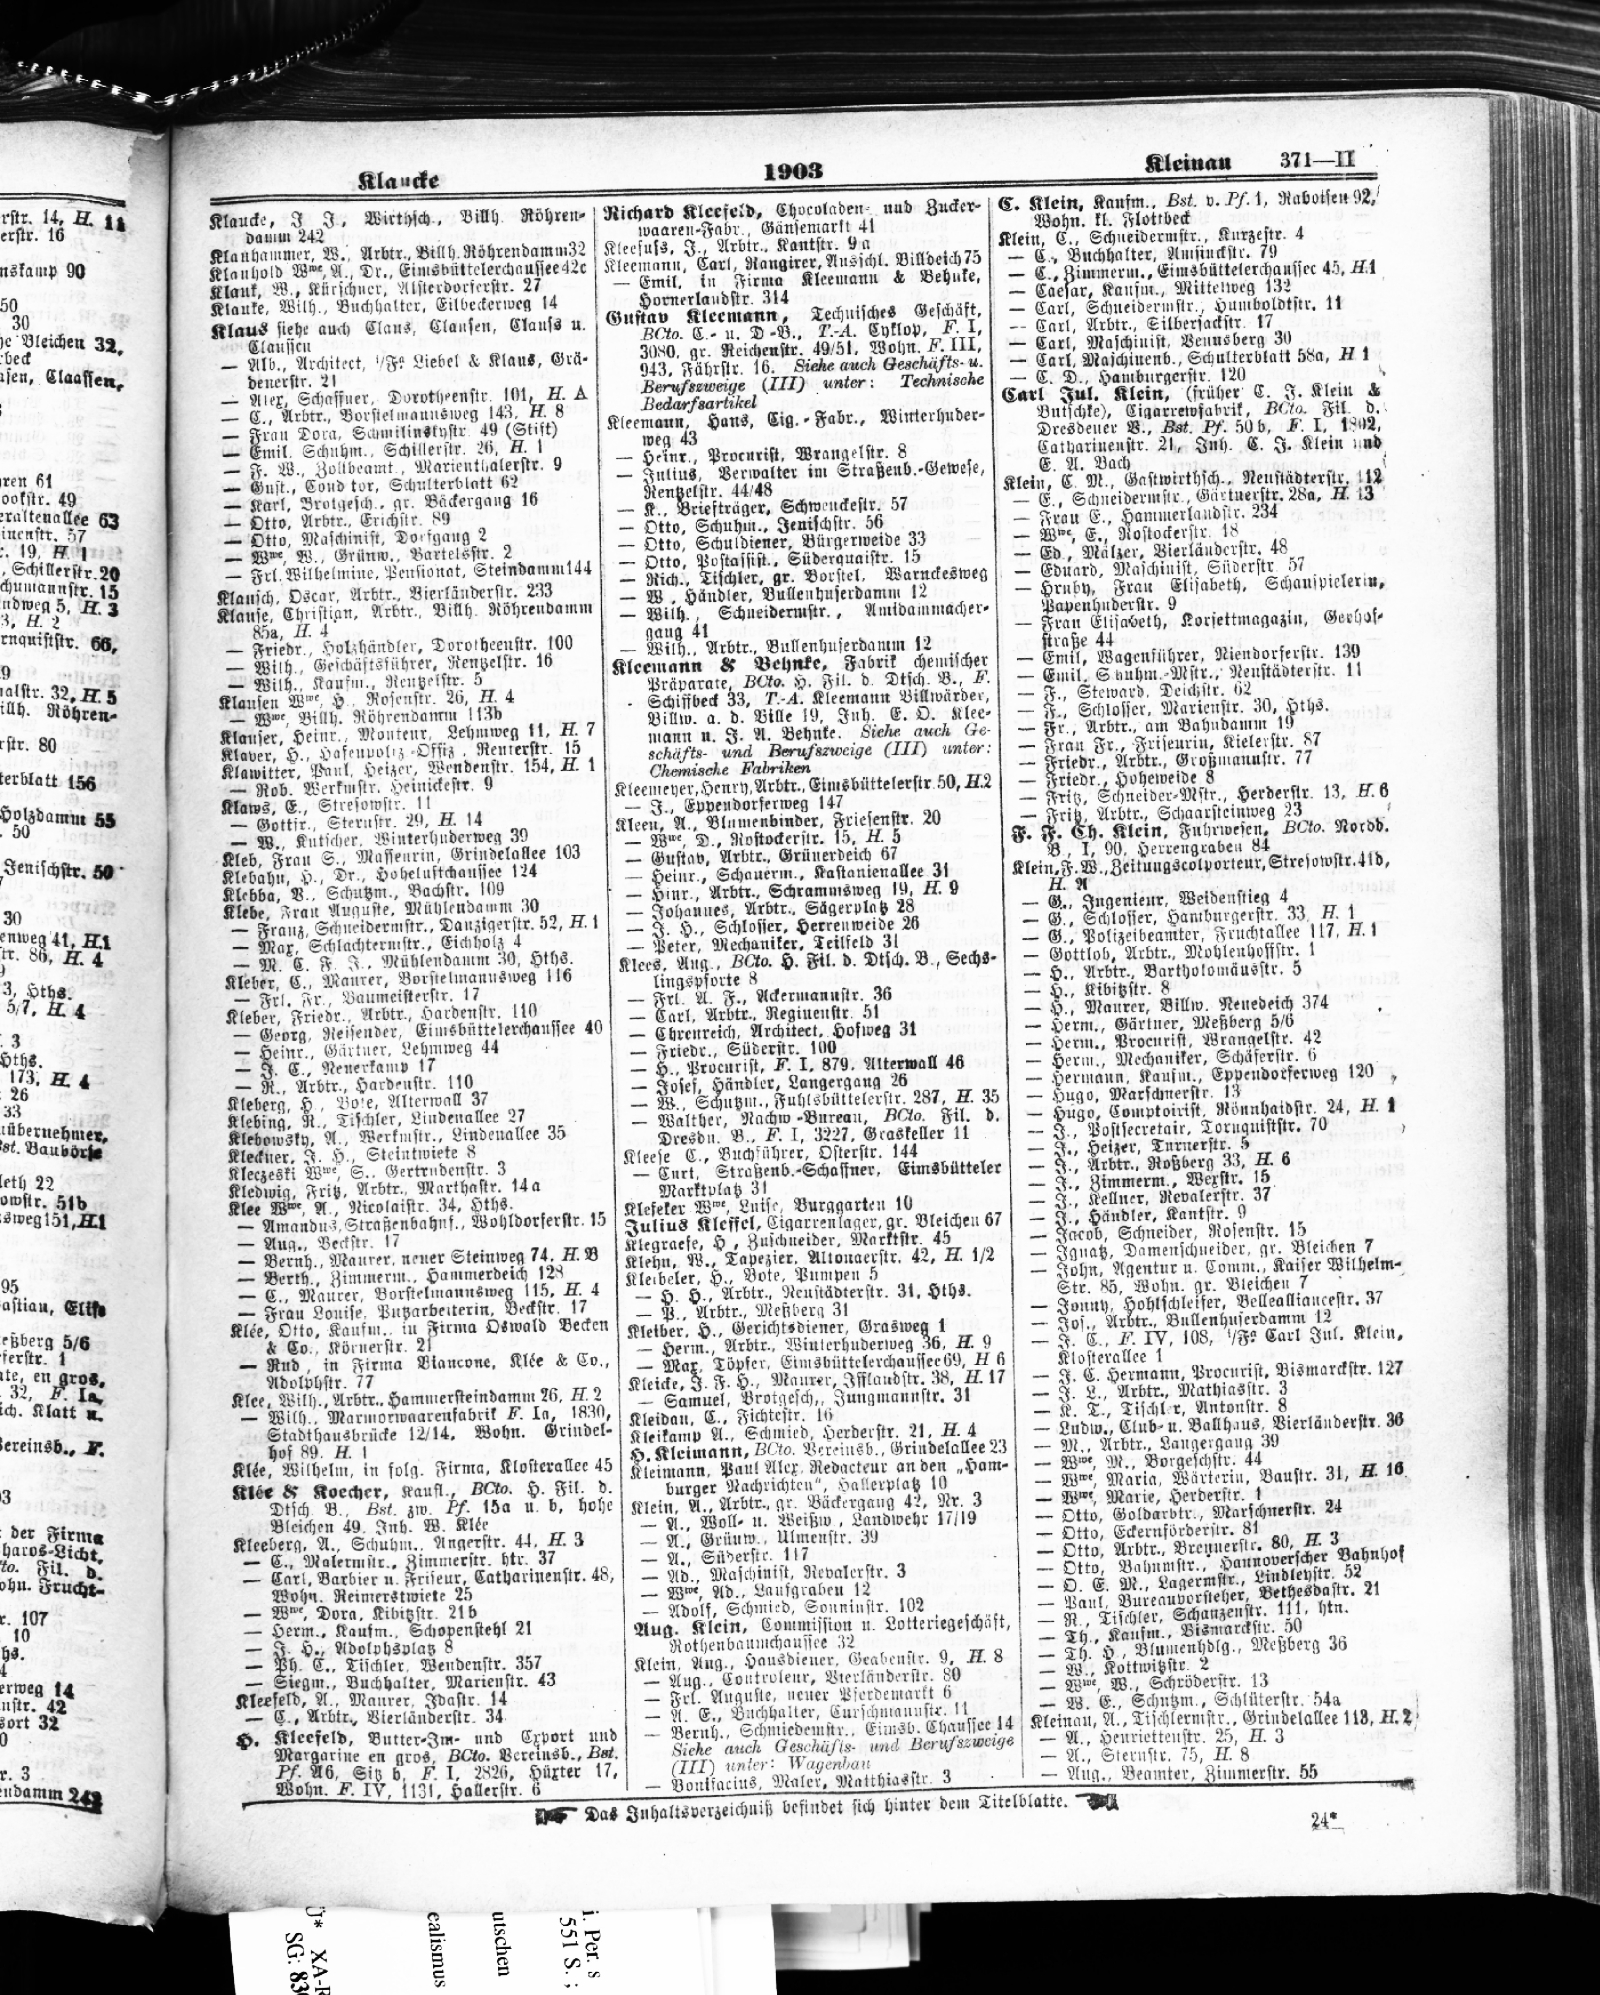 Klaucke
1903
Kleinau 371—II
Klaucke, J. J., Wirthsch., Billh. Röhren-
damm 242
Klauhammer, W., Arbtr., Billh. Röhrendamm 32
Klauhold Wwe, A., Dr., Eimsbüttelerchaussee 42c
Klauk, W., Kürschner, Alsterdorferstr. 27
Klauke, Wilh., Buchhalter, Eilbeckerweg 14
Klaus siehe auch Claus, Clausen, Clauss u.
Claussen
— Alb., Architect, i/Fa Liebel & Klaus, Grä-
denerstr. 21
— Alex, Schaffner, Dorotheenstr. 101, H. A
— C., Arbtr., Borstelmannsweg 143, H. 8
— Frau Dora, Schmilinskystr. 49 (Stift)
— Emil, Schuhm., Schillerstr. 26, H. 1
— F. W., Zollbeamt., Marienthalerstr. 9
— Gust., Conditor, Schulterblatt 62
— Karl, Brotgesch., gr. Bäckergang 16
— Otto, Arbtr., Erichstr. 89
— Otto, Maschinist, Dorfgang 2
— Wwe, W., Grünw., Bartelsstr. 2
— Frl. Wilhelmine, Pensionat, Steindamm 144
Klausch, Oscar, Arbtr., Vierländerstr. 233
Klause, Christian, Arbtr., Billh. Röhrendamm
85a, H. 4
— Friedr., Holzhändler, Dorotheenstr. 100
— Wilh., Geschäftsführer, Rentzelstr. 16
— Wilh., Kaufm., Rentzelstr. 5
Klausen Wwe, H., Rosenstr. 26, H. 4
— Wwe, Billh. Röhrendamm 113b
Klauser, Heinr., Monteur, Lehmweg 11, H. 7
Klaver, H., Hafenpoliz.-Offiz., Reuterstr. 15
Klawitter, Paul, Heizer, Wendenstr. 154, H. 1
— Rob. Werkmstr. Heinickestr. 9
Klaws, E., Stresowstr. 11
— Gottfr., Sternstr. 29, H. 14
— W., Kutscher, Winterhuderweg 39
Kleb, Frau S., Masseurin, Grindelallee 103
Klebahn, H., Dr., Hoheluftchaussee 124
Klebba, B., Schutzm., Bachstr. 109
Klebe, Frau Auguste, Mühlendamm 30
— Franz, Schneidermstr., Danzigerstr. 52, H. 1
— Max, Schlachtermstr., Eichholz 4
— M. C. F. J., Mühlendamm 30, Hths.
Kleber, C., Maurer, Borstelmannsweg 116
— Frl. Fr., Baumeisterstr. 17
Kleber, Friedr., Arbtr., Hardenstr. 110
— Georg, Reisender, Eimsbüttelerchaussee 40
— Heinr., Gärtner, Lehmweg 44
— J. C., Neuerkamp 17
— R., Arbtr., Hardenstr. 110
Kleberg, H., Bote, Alterwall 37
Klebing, R., Tischler, Lindenallee 27
Klebowsky, A., Werkmstr., Lindenallee 35
Kleckner, J. H., Steintwiete 8
Kleczeski Wwe, S., Gertrudenstr. 3
Kledwig, Fritz, Arbtr., Marthastr. 14a
Klee Wwe, A., Nicolaistr. 34, Hths.
— Amandus, Straßenbahnf., Wohldorferstr. 15
— Aug., Beckstr. 17
— Bernh., Maurer, neuer Steinweg 74, H. B
— Berth., Zimmerm., Hammerdeich 128
— C., Maurer, Borstelmannsweg 115, H. 4
— Frau Louise, Putzarbeiterin, Beckstr. 17
Klée, Otto, Kaufm., in Firma Oswald Becken
& Co., Körnerstr. 21
— Rud., in Firma Biancone, Klée & Co.,
Adolphstr. 77
Klee, Wilh., Arbtr., Hammersteindamm 26, H. 2
— Wilh., Marmorwaarenfabrik F. Ia, 1830,
Stadthausbrücke 12/14, Wohn. Grindel-
hof 89. H. 1
Klée, Wilhelm, in folg. Firma, Klosterallee 45
Klée & Koecher, Kaufl., BCto. H. Fil. d.
Dtsch. B., Bst. zw. Pf. 15a u. b, hohe
Bleichen 49. Inh. W. Klée
Kleeberg, A., Schuhm., Angerstr. 44, H. 3
— C., Malermstr., Zimmerstr. htr. 37
— Carl, Barbier u. Friseur, Catharinenstr. 48,
Wohn. Reimerstwiete 25
— Wwe, Dora, Kibitzstr. 21b
— Herm., Kaufm., Schopenstehl 21
— J. H., Adolphsplatz 8
— Ph. C., Tischler, Wendenstr. 357
— Siegm., Buchhalter, Marienstr. 43
Kleefeld, A., Maurer, Idastr. 14
— C., Arbtr., Vierländerstr. 34
H. Kleefeld, Butter-Im- und Export und
Margarine en gros, BCto. Vereinsb., Bst.
Pf. A6, Sitz b, F. I, 2826, Hüxter 17,
Wohn. F. IV, 1131, Hallerstr. 6
Richard Kleefeld, Chocoladen- und Zucker-
waaren-Fabr., Gänsemarkt 41
Kleefuss, J., Arbtr., Kantstr. 9a
Kleemann, Carl, Rangirer, Ausschl. Billdeich 75
— Emil, in Firma Kleemann & Behnke,
Hornerlandstr. 314
Gustav Kleemann, Technisches Geschäft,
BCto. C.- u. D.-B., T.-A. Cyklop, F. I,
3080, gr. Reichenstr. 49/51, Wohn. F. III,
943, Fährstr. 16. Siehe auch Geschäfts- u.
Berufszweige (III) unter: Technische
Bedarfsartikel
Kleemann, Hans, Cig.-Fabr., Winterhuder-
weg 43
— Heinr., Procurist, Wrangelstr. 8
— Julius, Verwalter im Straßenb.-Gewese,
Rentzelstr. 44/48
— K., Briefträger, Schwenckestr. 57
— Otto, Schuhm., Jenischstr. 56
— Otto, Schuldiener, Bürgerweide 33
— Otto, Postassist., Süderquaistr. 15
— Rich., Tischler, gr. Borstel, Warnckesweg
— W., Händler, Bullenhuserdamm 12
— Wilh., Schneidermstr., Amidammacher-
gang 41
— Wilh., Arbtr., Bullenhuserdamm 12
Kleemann & Behnke, Fabrik chemischer
Präparate, BCto. H. Fil. d. Dtsch. B., F.
Schiffbeck 33, T.-A. Kleemann Billwärder,
Billw. a. d. Bille 19, Inh. E. O. Klee-
mann u. J. A. Behnke. Siehe auch Ge-
schäfts- und Berufszweige (III) unter:
Chemische Fabriken
Kleemeyer, Henry, Arbtr., Eimsbüttelerstr. 50, H. 2
— J., Eppendorferweg 147
Kleen, A., Blumenbinder, Friesenstr. 20
— Wwe, D., Rostockerstr. 15, H. 5
— Gustav, Arbtr., Grünerdeich 67
— Heinr., Schauerm., Kastanienallee 31
— Hinr., Arbtr., Schrammsweg 19, H. 9
— Johannes, Arbtr., Sägerplatz 28
— J. H., Schlosser, Herrenweide 26
— Peter, Mechaniker, Teilfeld 31
Klees, Aug., BCto. H. Fil. d. Dtsch. B., Sechs-
lingspforte 8
— Frl. A. F., Ackermannstr. 36
— Carl, Arbtr., Reginenstr. 51
— Ehrenreich, Architect, Hofweg 31
— Friedr., Süderstr. 100
— H., Procurist, F. I, 879, Alterwall 46
— Josef, Händler, Langergang 26
— W., Schutzm., Fuhlsbüttelerstr. 287, H. 35
— Walther, Nachw.-Bureau, BCto. Fil. d.
Dresdn. B., F. I, 3227, Graskeller 11
Kleese C., Buchführer, Osterstr. 144
— Curt, Straßenb.-Schaffner, Eimsbütteler
Marktplatz 31
Klefeker Wwe, Luise, Burggarten 10
Julius Kleffel, Cigarrenlager, gr. Bleichen 67
Klegraefe, H., Zuschneider, Marktstr. 45
Klehn, W., Tapezier, Altonaerstr. 42, H. 1/2
Kleibeler, H., Bote, Pumpen 5
— H. H., Arbtr., Neustädterstr. 31, Hths.
— P., Arbtr., Meßberg 31
Kleiber, H., Gerichtsdiener, Grasweg 1
— Herm., Arbtr., Winterhuderweg 36, H. 9
— Max, Töpfer, Eimsbüttelerchaussee 69, H 6
Kleicke, J. F. H., Maurer, Ifflandstr. 38, H. 17
— Samuel, Brotgesch., Jungmannstr. 31
Kleidau, C., Fichtestr. 16
Kleikamp A., Schmied, Herderstr. 21, H. 4
H. Kleimann, BCto. Vereinsb., Grindelallee 23
Kleimann, Paul Alex, Redacteur an den „Ham-
burger Nachrichten“, Hallerplatz 10
Klein, A., Arbtr., gr. Bäckergang 42, Nr. 3
— A., Woll- u. Weißw., Landwehr 17/19
— A., Grünw., Ulmenstr. 39
— A., Süderstr. 117
— Ad., Maschinist, Revalerstr. 3
— Wwe, Ad., Laufgraben 12
— Adolf, Schmied, Sonninstr. 102
Aug. Klein, Commission u. Lotteriegeschäft,
Rothenbaumchaussee 32
Klein, Aug., Hausdiener, Grabenstr. 9, H. 8
— Aug., Controleur, Vierländerstr. 80
— Frl. Auguste, neuer Pferdemarkt 6
— A. E., Buchhalter, Curschmannstr. 11
— Bernh., Schmiedemstr., Eimsb. Chaussee 14
Siehe auch Geschäfts- und Berufszweige
(III) unter: Wagenbau
— Bonifacius, Maler, Matthiasstr. 3
C. Klein, Kaufm., Bst. v. Pf. 1, Raboisen 92,
Wohn. kl. Flottbeck
Klein, C., Schneidermstr., Kurzestr. 4
— C., Buchhalter, Amsinckstr. 79
— C., Zimmerm., Eimsbüttelerchaussee 45, H. 1
— Caesar, Kaufm., Mittelweg 132
— Carl, Schneidermstr., Humboldtstr. 11
— Carl, Arbtr., Silbersackstr. 17
— Carl, Maschinist, Venusberg 30
— Carl, Maschinenb., Schulterblatt 58a, H 1
— C. D., Hamburgerstr. 120
Carl Jul. Klein, (früher C. J. Klein &
Butschke), Cigarrenfabrik, BCto. Fil. d.
Dresdener B., Bst. Pf. 50b, F. I, 1802,
Catharinenstr. 21, Inh. C. J. Klein und
E. A. Bach
Klein, C. M., Gastwirthsch., Neustädterstr. 112
— E., Schneidermstr., Gärtnerstr. 28a, H. 13
— Frau E., Hammerlandstr. 234
— Wwe, E., Rostockerstr. 18
— Ed., Mälzer, Vierländerstr. 48
— Eduard, Maschinist, Süderstr. 57
— Hruby, Frau Elisabeth, Schauspielerin,
Papenhuderstr. 9
— Frau Elisabeth, Korsettmagazin, Gerhof-
straße 44
— Emil, Wagenführer, Niendorferstr. 139
— Emil, Schuhm.-Mstr., Neustädterstr. 11
— F., Steward, Deichstr. 62
— F., Schlosser, Marienstr. 30, Hths.
— Fr., Arbtr., am Bahndamm 19
— Frau Fr., Friseurin, Kielerstr. 87
— Friedr., Arbtr., Großmannstr. 77
— Friedr., Hoheweide 8
— Fritz, Schneider-Mstr., Herderstr. 13, H. 6
— Fritz, Arbtr., Schaarsteinweg 23
F. F. Ch. Klein, Fuhrwesen, BCto. Nordd.
B., I, 90, Herrengraben 84
Klein, F. W., Zeitungscolporteur, Stresowstr. 41b,
H. A
— G., Ingenieur, Weidenstieg 4
— G., Schlosser, Hamburgerstr. 33, H. 1
— G., Polizeibeamter, Fruchtallee 117, H. 1
— Gottlob, Arbtr., Mohlenhoffstr. 1
— H., Arbtr., Bartholomäusstr. 5
— H., Kibitzstr. 8
— H., Maurer, Billw. Neuedeich 374
— Herm., Gärtner, Meßberg 5/6
— Herm., Procurist, Wrangelstr. 42
— Herm., Mechaniker, Schäferstr. 6
— Hermann, Kaufm., Eppendorferweg 120
— Hugo, Marschnerstr. 13
— Hugo, Comptoirist, Rönnhaidstr. 24, H. 1
— J., Postsecretair, Tornquiststr. 70
— J., Heizer, Turnerstr. 5
— J., Arbtr., Roßberg 33, H. 6
— J., Zimmerm., Wexstr. 15
— J., Kellner, Revalerstr. 37
— J., Händler, Kantstr. 9
— Jacob, Schneider, Rosenstr. 15
— Ignatz, Damenschneider, gr. Bleichen 7
— John, Agentur u. Comm., Kaiser Wilhelm-
Str. 85, Wohn. gr. Bleichen 7
— Jonny, Hohlschleifer, Bellealliancestr. 37
— Jos., Arbtr., Bullenhuserdamm 12
— J. C., F. IV, 108, i/Fa Carl Jul. Klein,
Klosterallee 1
— J. C. Hermann, Procurist, Bismarckstr. 127
— J. L., Arbtr., Mathiasstr. 3
— K. T., Tischler, Antonstr. 8
— Ludw., Club- u. Ballhaus, Vierländerstr. 36
— M., Arbtr., Langergang 39
— Wwe, M., Borgeschstr. 44
— Wwe, Maria, Wärterin, Baustr. 31, H. 16
— Wwe, Marie, Herderstr. 1
— Otto, Goldarbtr., Marschnerstr. 24
— Otto, Eckernförderstr. 81
— Otto, Arbtr., Brennerstr. 80, H. 3
— Otto, Bahnmstr., Hannoverscher Bahnhof
— O. E. M., Lagermstr., Lindleystr. 52
— Paul, Bureauvorsteher, Bethesdastr. 21
— R., Tischler, Schanzenstr. 111, htn.
— Th., Kaufm., Bismarckstr. 50
— Th. H., Blumenhdlg., Meßberg 36
— W., Kottwitzstr. 2
— Wwe, W., Schröderstr. 13
— W. E., Schutzm., Schlüterstr. 54a
Kleinau, A., Tischlermstr., Grindelallee 113, H. 2
— A., Henriettenstr. 25, H. 3
— A., Sternstr. 75, H. 8
— Aug., Beamter, Zimmerstr. 55
Das Inhaltsverzeichniß befindet sich hinter dem Titelblatte.
24*